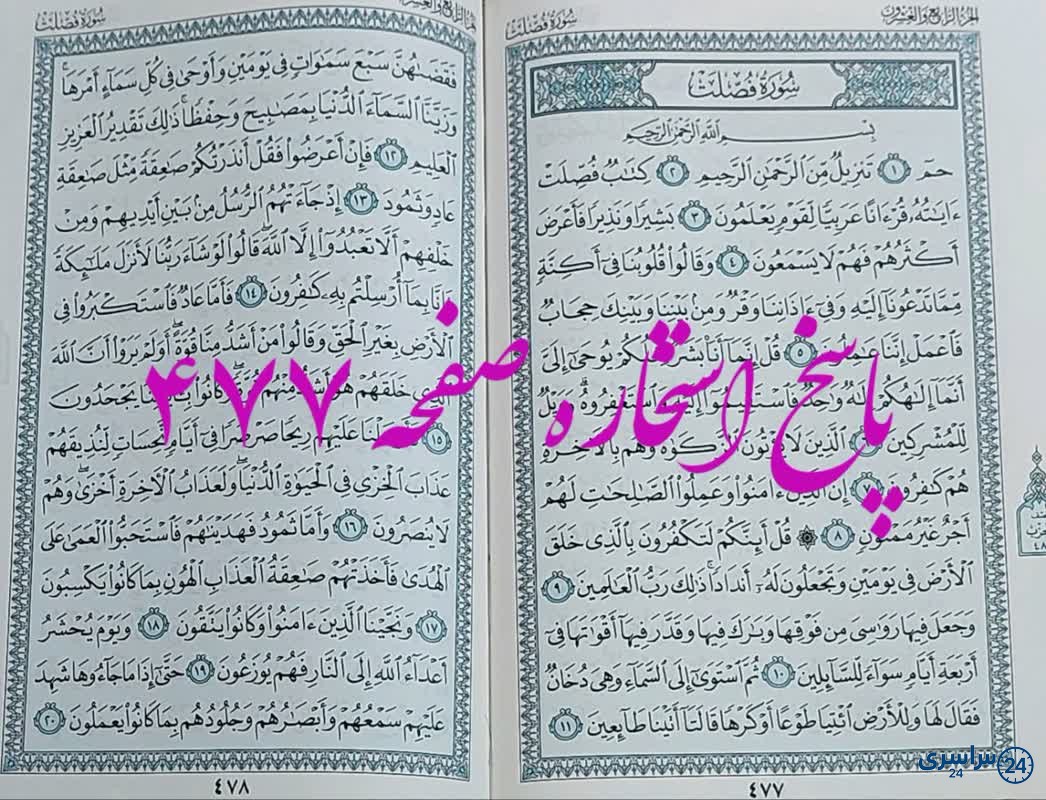 الجزء الرابع والعشرون
سورة فصلت
سُورَةُ فُصِّلَتْ
بِسْمِ اللَّهِ الرَّحْمَٰنِ الرَّحِيمِ
حمٓ ١ تَنزِيلٌ مِّنَ الرَّحْمَٰنِ الرَّحِيمِ ٢ كِتَابٌ فُصِّلَتْ
ءَايَاتُهُۥ قُرْءَانًا عَرَبِيًّا لِّقَوْمٍ يَعْلَمُونَ ٣ بَشِيرًا وَنَذِيرًا فَأَعْرَضَ
أَكْثَرُهُمْ فَهُمْ لَا يَسْمَعُونَ ٤ وَقَالُوا۟ قُلُوبُنَا فِىٓ أَكِنَّةٍ
مِّمَّا تَدْعُونَآ إِلَيْهِ وَفِىٓ ءَاذَانِنَا وَقْرٌ وَمِنۢ بَيْنِنَا وَبَيْنِكَ حِجَابٌ
فَاعْمَلْ إِنَّنَا ٥ قُلْ إِنَّمَآ أَنَا۠ يُوحَىٰٓ إِلَىَّ
أَنَّمَآ إِلَٰهُكُمْ إِلَٰهٌ وَٰحِدٌ وَاسْتَغْفِرُوهُ ۗ وَوَيْلٌ
لِّلْمُشْرِكِينَ الَّذِينَ لَا وَهُم بِالْءَاخِرَةِ
هُمْ كَٰفِرُونَ ٧ إِنَّ ءَامَنُوا۟ وَعَمِلُوا۟ الصَّٰلِحَٰتِ لَهُمْ
أَجْرٌ غَيْرُ مَمْنُونٍ ٨ ۞ قُلْ أَئِنَّكُمْ لَتَكْفُرُونَ بِالَّذِى خَلَقَ
الْأَرْضَ فِى يَوْمَيْنِ وَتَجْعَلُونَ لَهُۥٓ أَندَادًا ۚ ذَٰلِكَ رَبُّ الْعَٰلَمِينَ ٩
وَجَعَلَ فِيهَا رَوَٰسِىَ مِن فَوْقِهَا وَبَٰرَكَ فِيهَا وَقَدَّرَ فِيهَآ أَقْوَٰتَهَا فِىٓ
أَرْبَعَةِ أَيَّامٍ سَوَآءً لِّلسَّآئِلِينَ ١٠ ثُمَّ اسْتَوَىٰٓ إِلَى السَّمَآءِ وَهِىَ دُخَانٌ
فَقَالَ لَهَا وَلِلْأَرْضِ ائْتِيَا طَوْعًا أَوْ كَرْهًا قَالَتَآ أَتَيْنَا طَآئِعِينَ ١١
٤٧٧
سورة فصلت
فَقَضَىٰهُنَّ سَبْعَ سَمَٰوَاتٍ فِى يَوْمَيْنِ وَأَوْحَىٰ فِى كُلِّ سَمَآءٍ أَمْرَهَا ۚ
وَزَيَّنَّا السَّمَآءَ الدُّنْيَا بِمَصَٰبِيحَ وَحِفْظًا ۚ ذَٰلِكَ تَقْدِيرُ الْعَزِيزِ
الْعَلِيمِ ١٢ فَإِنْ أَعْرَضُوا۟ فَقُلْ أَنذَرْتُكُمْ صَٰعِقَةً مِّثْلَ صَٰعِقَةِ
عَادٍ وَثَمُودَ ١٣ إِذْ جَآءَتْهُمُ الرُّسُلُ مِنۢ بَيْنِ أَيْدِيهِمْ وَمِنْ
خَلْفِهِمْ أَلَّا تَعْبُدُوٓا۟ إِلَّا اللَّهَ ۖ قَالُوا۟ لَوْ شَآءَ رَبُّنَا لَأَنزَلَ مَلَٰٓئِكَةً
فَإِنَّا بِمَآ أُرْسِلْتُم بِهِۦ كَٰفِرُونَ ١٤ فَأَمَّا عَادٌ فَاسْتَكْبَرُوا۟ فِى
الْأَرْضِ بِغَيْرِ الْحَقِّ وَقَالُوا۟ مَنْ أَشَدُّ مِنَّا قُوَّةً ۖ أَوَلَمْ يَرَوْا۟ أَنَّ اللَّهَ
الَّذِى خَلَقَهُمْ هُوَ أَشَدُّ مِنْهُمْ قُوَّةً ۖ وَكَانُوا۟ يَجْحَدُونَ
١٥ عَلَيْهِمْ رِيحًا صَرْصَرًا فِىٓ أَيَّامٍ نَّحِسَاتٍ لِّنُذِيقَهُمْ
عَذَابَ الْخِزْىِ فِى الْحَيَوٰةِ الدُّنْيَا ۖ وَلَعَذَابُ الْءَاخِرَةِ أَخْزَىٰ ۖ وَهُمْ
لَا يُنصَرُونَ ١٦ وَأَمَّا ثَمُودُ فَهَدَيْنَٰهُمْ فَاسْتَحَبُّوا۟ الْعَمَىٰ عَلَى
الْهُدَىٰ فَأَخَذَتْهُمْ صَٰعِقَةُ الْعَذَابِ الْهُونِ بِمَا كَانُوا۟ يَكْسِبُونَ
١٧ وَنَجَّيْنَا الَّذِينَ ءَامَنُوا۟ وَكَانُوا۟ يَتَّقُونَ ١٨ وَيَوْمَ يُحْشَرُ
أَعْدَآءُ اللَّهِ إِلَى النَّارِ فَهُمْ يُوزَعُونَ ١٩ حَتَّىٰٓ إِذَا مَا جَآءُوهَا شَهِدَ
عَلَيْهِمْ سَمْعُهُمْ وَأَبْصَٰرُهُمْ وَجُلُودُهُم بِمَا كَانُوا۟ يَعْمَلُونَ ٢٠
٤٧٨
پاسخ استخاره صفحه ۴۷۷
سراسری 24
24